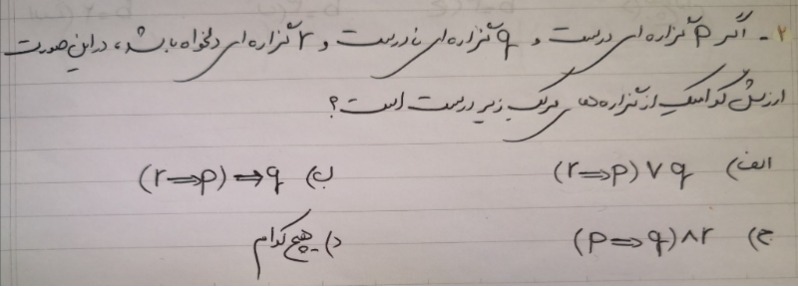 ۲- اگر p گزاره ای درست و q گزاره ای نادرست و r گزاره ای دلخواه باشد، در این صورت
ارزش کدامیک از گزاره های مرکب زیر درست است؟
الف) (r⇒p) ∨ q ب) (r⇒p) ⇔ q
ج) (p⇒q) ∧ r د) هیچ کدام